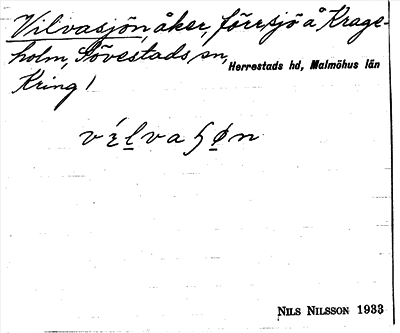 Vilvasjön, åker, förr sjö å Krage-
holm, Sövestads sn, Herrestads hd, Malmöhus län
Kring 1
NILS NILSSON 1933